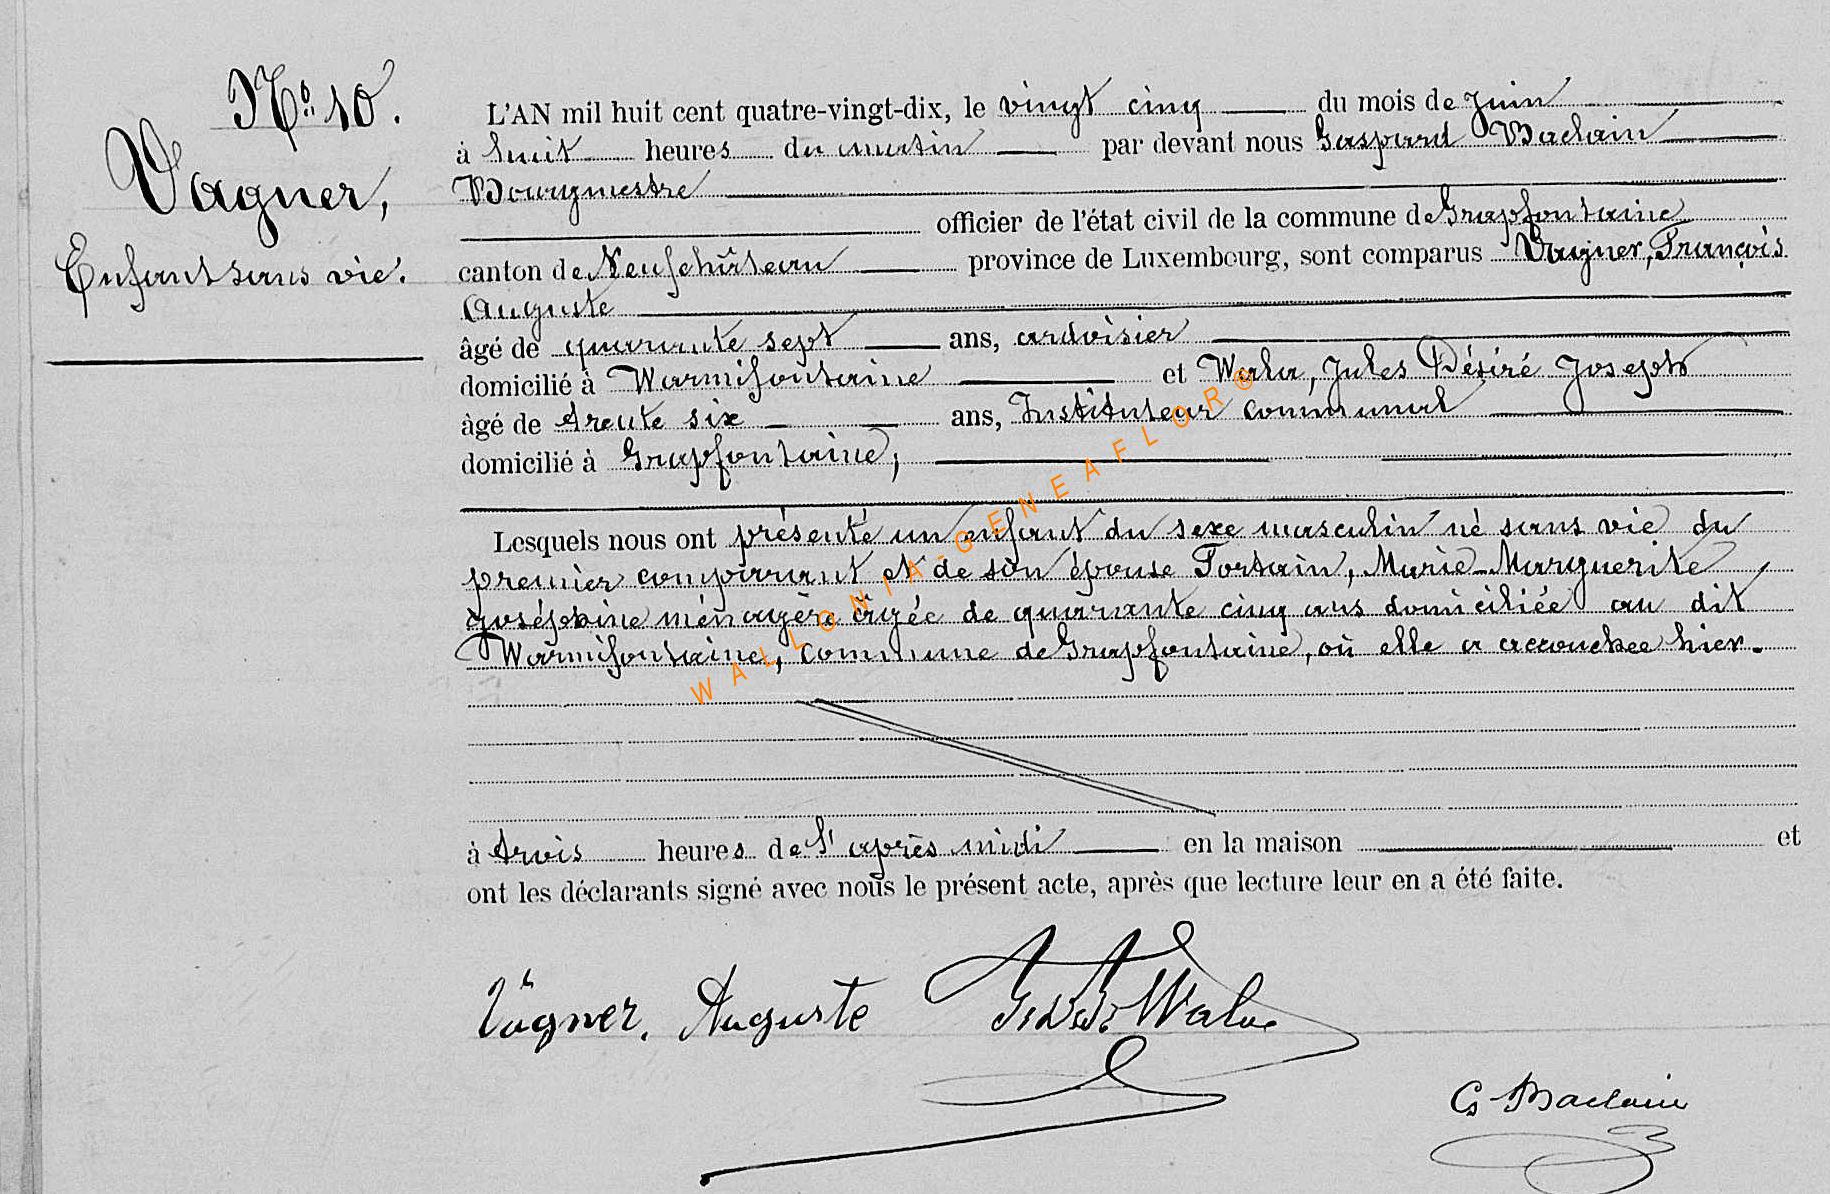 No. 10.
Vagner,
Enfant sans vie.
L'AN mil huit cent quatre-vingt-dix, le vingt cinq du mois de juin
à huit heures du matin par devant nous Gaspard Baclain
Bourgmestre
officier de l'état civil de la commune de Grapfontaine
canton de Neufchâteau province de Luxembourg, sont comparus Vagner, François
Auguste
âgé de quarante sept ans, ardoisier
domicilié à Warmifontaine et Walu, Jules Désiré Joseph
âgé de trente six ans, Instituteur communal
domicilié à Grapfontaine,
Lesquels nous ont présenté un enfant du sexe masculin né sans vie du
premier comparant et de son épouse Fortain, Marie-Marguerite
Joséphine ménagère âgée de quarante cinq ans domiciliée au dit
Warmifontaine, commune de Grapfontaine, où elle a accouchée hier.
à trois heures de l'après midi en la maison et
ont les déclarants signé avec nous le présent acte, après que lecture leur en a été faite.
Vagner, Auguste J. D. J. Walu
G Baclain
WALLONIA-GENEAFLOR®